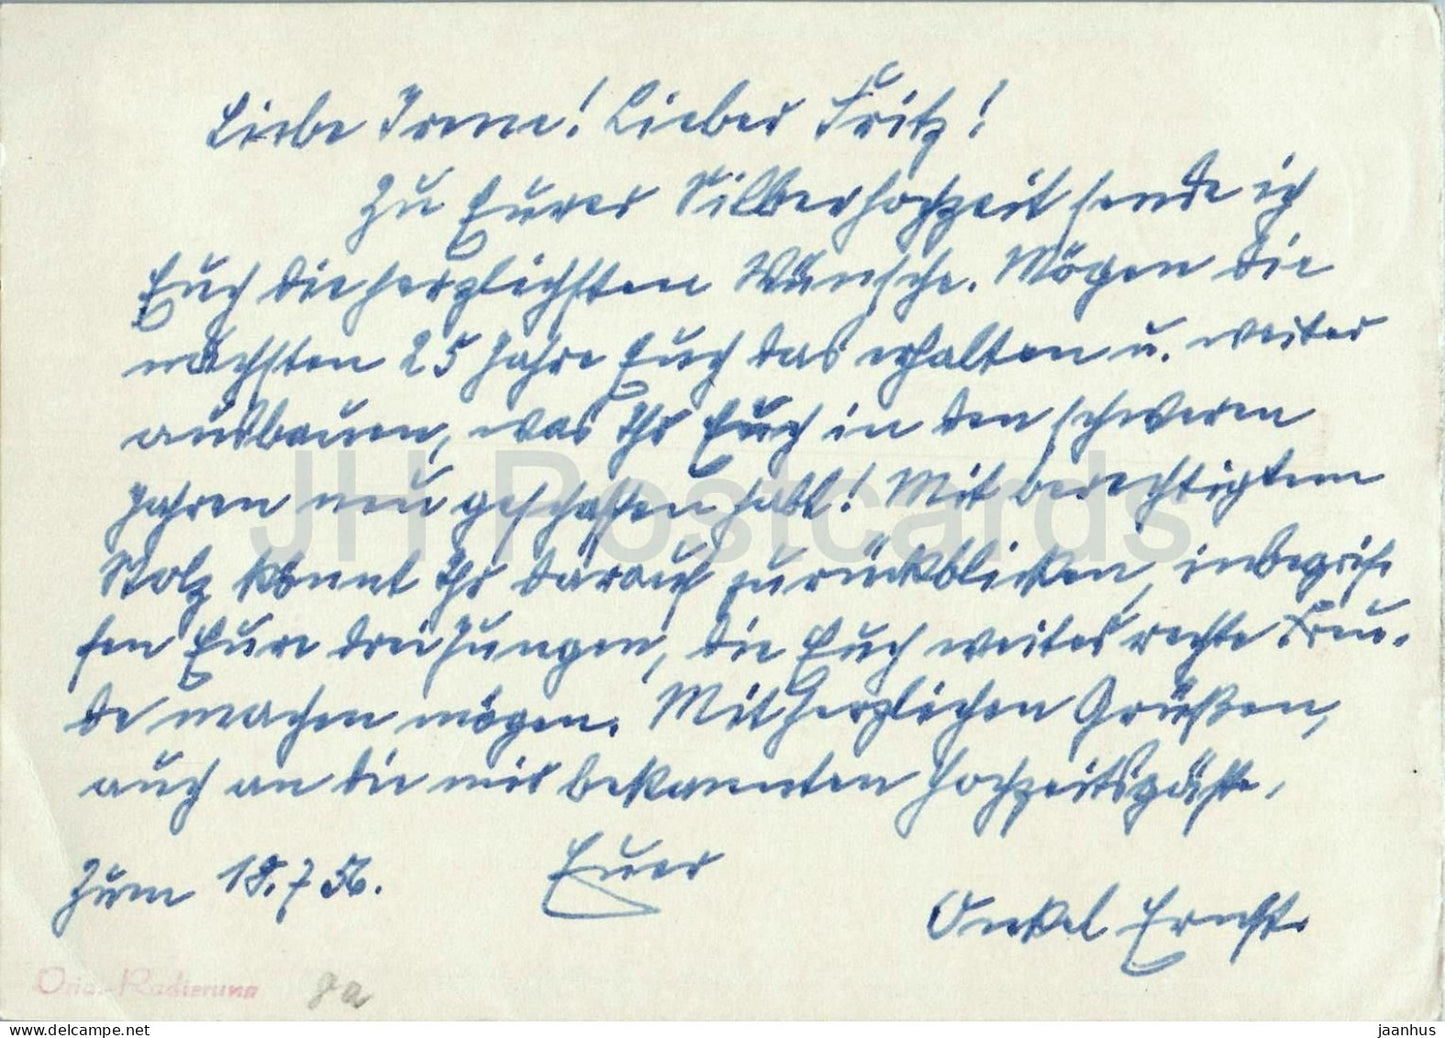 Liebe Irene! Lieber Fritz!
Zu Eurer Silberhochzeit sende ich
Euch die herzlichsten Wünsche. Mögen die
nächsten 25 Jahre Euch das erhalten u. weiter
ausbauen, was Ihr Euch in den schweren
Jahren neu geschaffen habt! Mit berechtigtem
Stolz könnt Ihr darauf zurückblicken, inbegrif-
fen Eure drei Jungen, die Euch weiter rechte Freu-
de machen mögen. Mit herzlichen Grüßen,
auch an die mir bekannten Hochzeitsgäste,
Euer
Zum 18.7.56.
Onkel Ernst.
Orig.-Radierung
ga
JH Postcards
delcampe.net
jaanhus